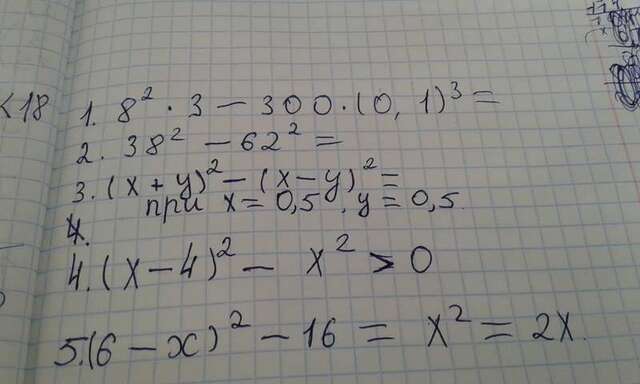 <18
1. 8² · 3 − 300 · (0,1)³ =
2. 38² − 62² =
3. (x + y)² − (x − y)² =
при x = 0,5, y = 0,5.
4.
4. (x − 4)² − x² > 0
5. (6 − x)² − 16 = x² = 2x.